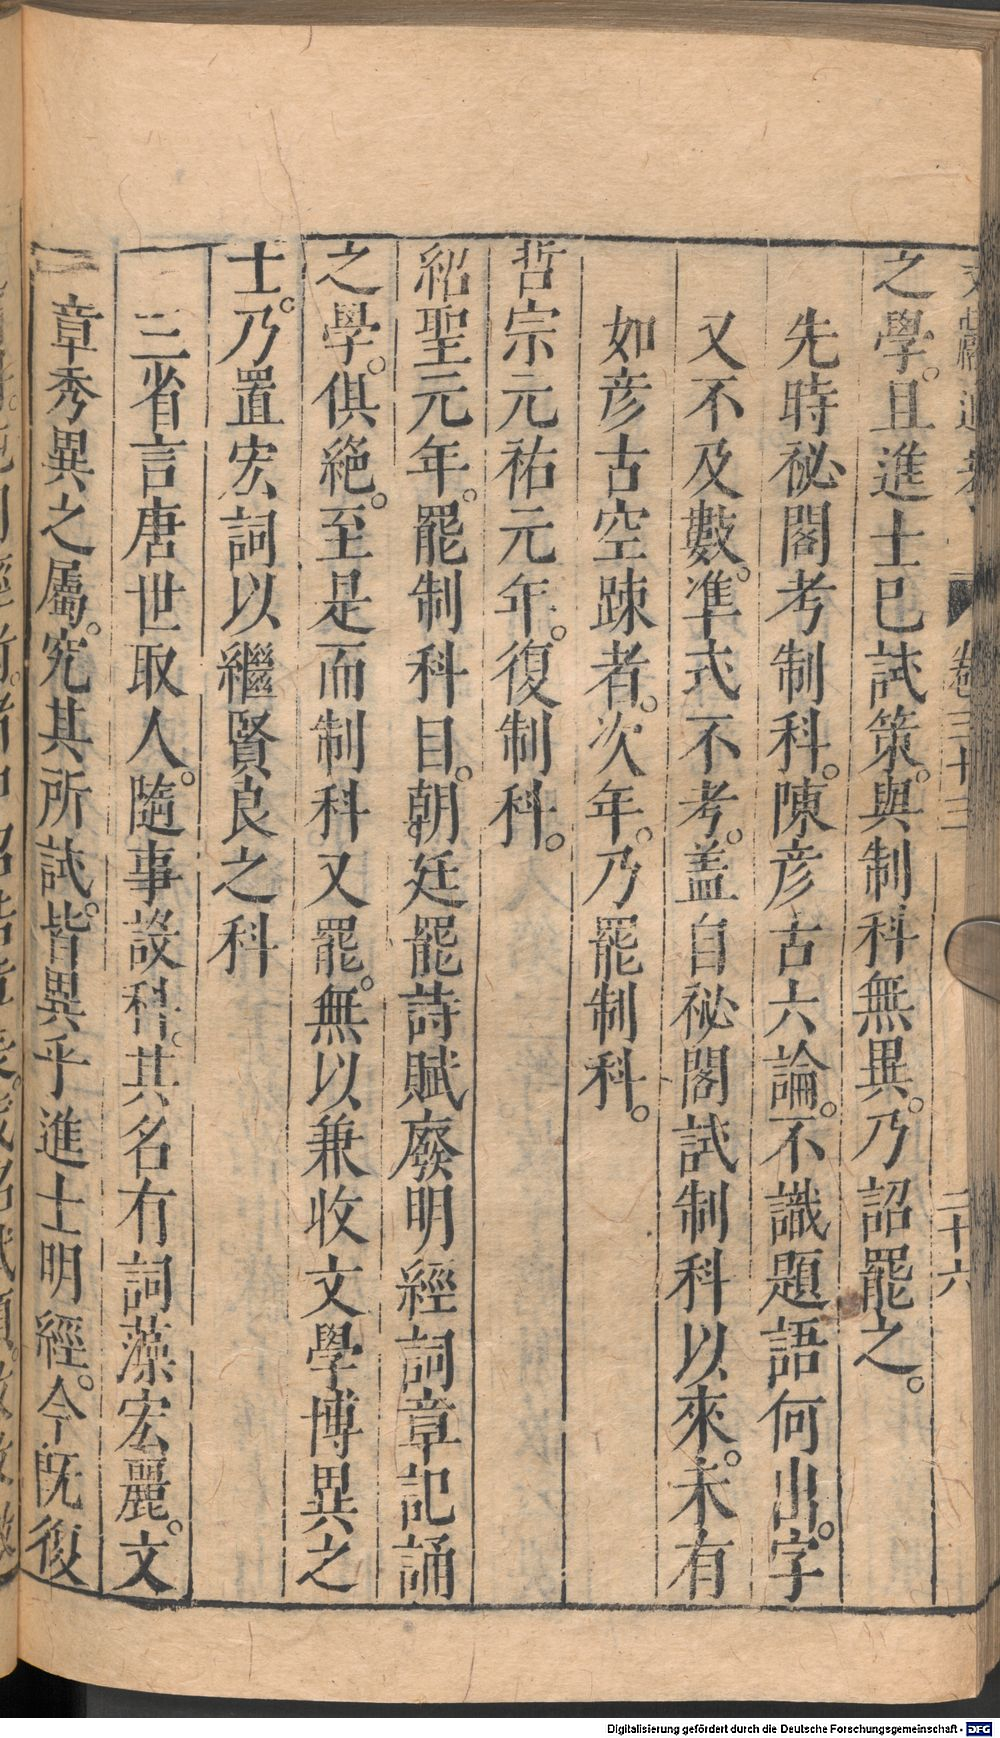 文獻通考 卷三十三 二十六
之學。且進士已試策。與制科無異。乃詔罷之。
先時秘閣考制科。陳彥古六論。不識題語何出。字
又不及數。準式不考。蓋自秘閣試制科以來。未有
如彥古空踈者。次年。乃罷制科。
哲宗元祐元年。復制科。
紹聖元年。罷制科目。朝廷罷詩賦廢明經詞章記誦
之學。俱絕。至是而制科又罷。無以兼收文學博異之
士。乃置宏詞以繼賢良之科
三省言唐世取人。隨事設科。其名有詞藻宏麗。文
章秀異之屬。究其所試。皆異乎進士明經。今既復
Digitalisierung gefördert durch die Deutsche Forschungsgemeinschaft - DFG